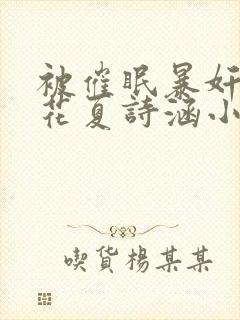 被催眠暴奸
花夏詩涵小
喫貨楊某某